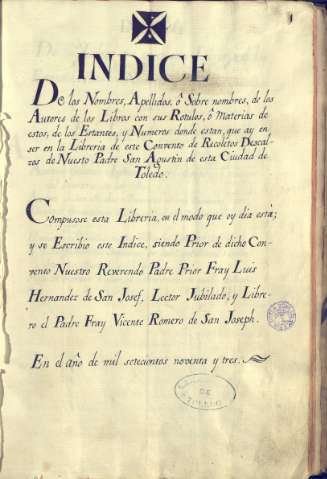 1
INDICE
De los Nombres, Apellidos, ô Sobre nombres, de los
Autores de los Libros con sus Rotulos, ô Materias de
estos, de los Estantes, y Numeros donde estan, que ay en
ser en la Libreria de este Convento de Recoletos Descal
zos de Nuesto Padre San Agustin de esta Ciudad de
Toledo.
Compusose esta Libreria, en el modo que oy dia está;
y se Escribio este Indice, siendo Prior de dicho Con
vento Nuestro Reverendo Padre Prior Fray Luis
Hernandez de San Josef, Lector Jubilado; y Libre
ro el Padre Fray Vicente Romero de San Joseph.
En el año de mil setecientos noventa y tres.
DE
TOLEDO